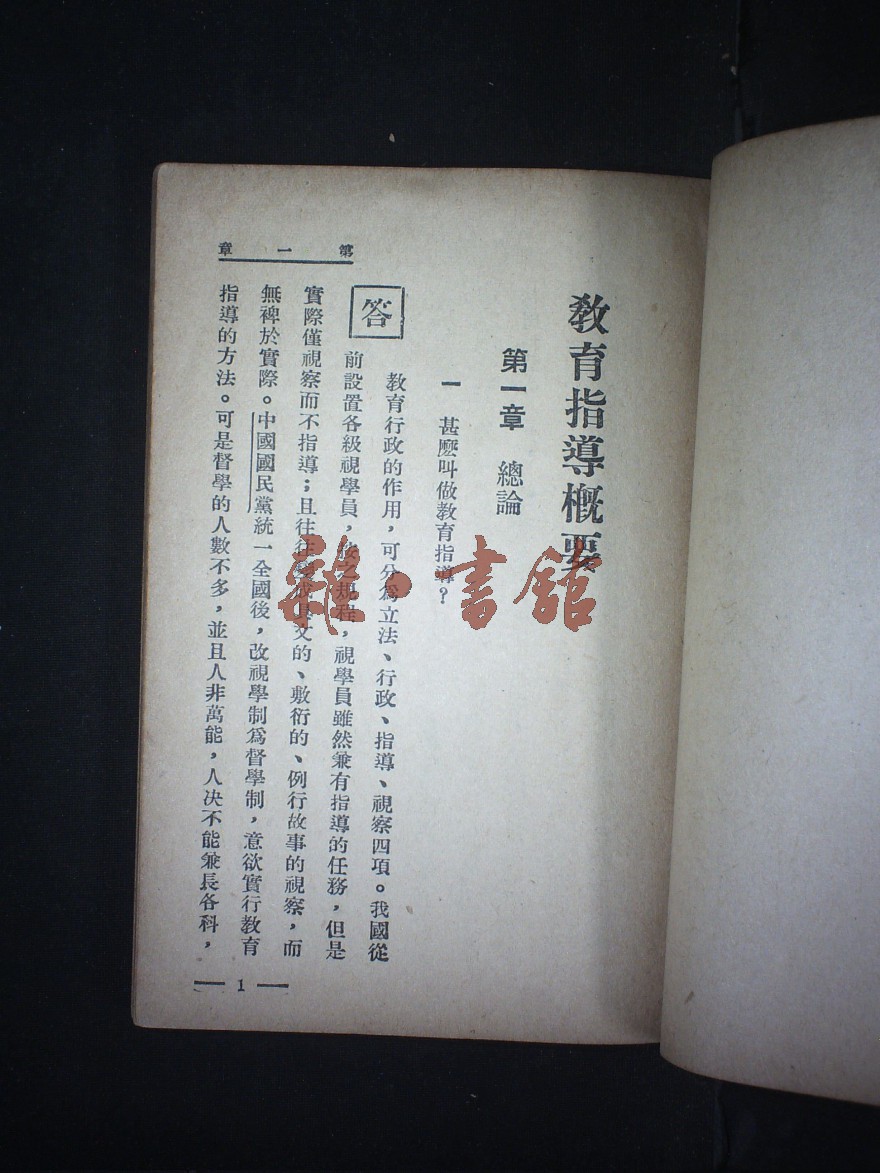 教育指導概要
第一章 總論
一 甚麼叫做教育指導？
答 教育行政的作用，可分為立法、行政、指導、視察四項。我國從
前設置各級視學員，按之規程，視學員雖然兼有指導的任務，但是
實際僅視察而不指導；且往往變成具文的、敷衍的、例行故事的視察，而
無裨於實際。中國國民黨統一全國後，改視學制爲督學制，意欲實行教育
指導的方法。可是督學的人數不多，並且人非萬能，人决不能兼長各科，
第一章
1
雜·書館